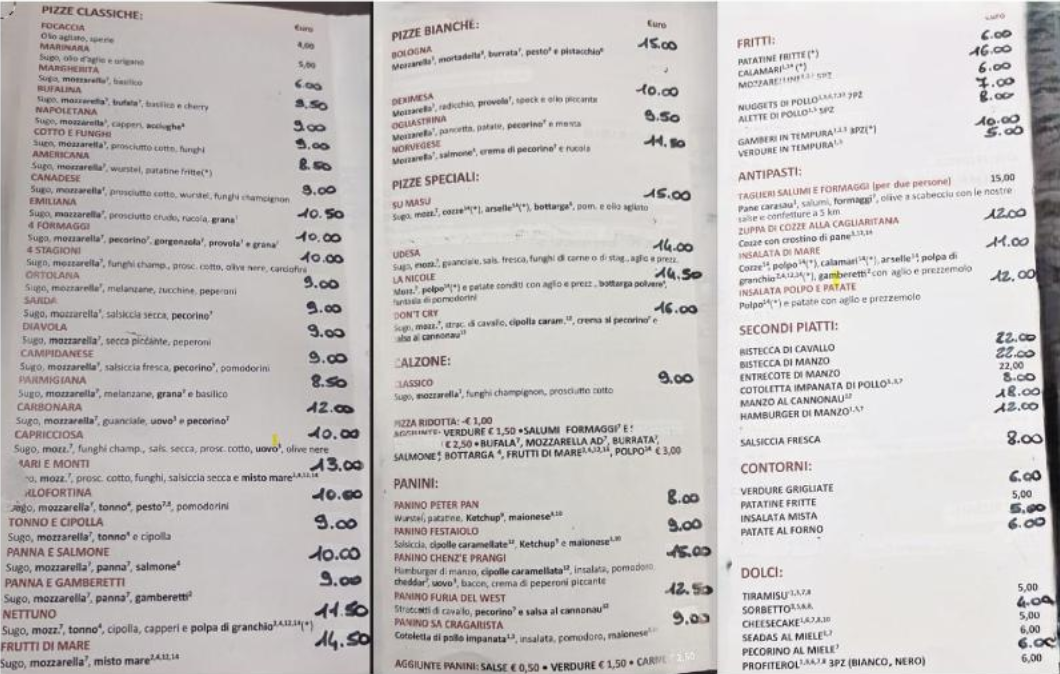 PIZZE CLASSICHE:
Euro
FOCACCIA 4,00
Olio agliato, spezie
MARINARA 5,00
Sugo, olio d'aglio e origano
MARGHERITA 6.00
Sugo, mozzarella⁷, basilico
BUFALINA 9,50
Sugo, mozzarella⁷, bufala⁷, basilico e cherry
NAPOLETANA 9.00
Sugo, mozzarella⁷, capperi, acciughe⁴
COTTO E FUNGHI 9.00
Sugo, mozzarella⁷, prosciutto cotto, funghi
AMERICANA 8.50
Sugo, mozzarella⁷, wurstel, patatine fritte(*)
CANADESE 9.00
Sugo, mozzarella⁷, prosciutto cotto, wurstel, funghi champignon
EMILIANA 10.50
Sugo, mozzarella⁷, prosciutto crudo, rucola, grana⁷
4 FORMAGGI 10.00
Sugo, mozzarella⁷, pecorino⁷, gorgonzola⁷, provola⁷ e grana⁷
4 STAGIONI 10.00
Sugo, mozzarella⁷, funghi champ., prosc. cotto, olive nere, carciofini
ORTOLANA 9.00
Sugo, mozzarella⁷, melanzane, zucchine, peperoni
SARDA 9.00
Sugo, mozzarella⁷, salsiccia secca, pecorino⁷
DIAVOLA 9.00
Sugo, mozzarella⁷, secca piccante, peperoni
CAMPIDANESE 9.00
Sugo, mozzarella⁷, salsiccia fresca, pecorino⁷, pomodorini
PARMIGIANA 8.50
Sugo, mozzarella⁷, melanzane, grana⁷ e basilico
CARBONARA 12.00
Sugo, mozzarella⁷, guanciale, uovo³ e pecorino⁷
CAPRICCIOSA 10.00
Sugo, mozz.⁷, funghi champ., sals. secca, prosc. cotto, uovo³, olive nere
MARI E MONTI 13.00
mozz.⁷, prosc. cotto, funghi, salsiccia secca e misto mare²,⁴,¹²,¹⁴
LOFORTINA 10.00
Sugo, mozzarella⁷, tonno⁴, pesto⁷,⁸, pomodorini
TONNO E CIPOLLA 9.00
Sugo, mozzarella⁷, tonno⁴ e cipolla
PANNA E SALMONE 10.00
Sugo, mozzarella⁷, panna⁷, salmone⁴
PANNA E GAMBERETTI 9.00
Sugo, mozzarella⁷, panna⁷, gamberetti²
NETTUNO 11.50
Sugo, mozz.⁷, tonno⁴, cipolla, capperi e polpa di granchio²,⁴,¹²,¹⁴(*)
FRUTTI DI MARE 14.50
Sugo, mozzarella⁷, misto mare²,⁴,¹²,¹⁴
PIZZE BIANCHE:
Euro
BOLOGNA 15.00
Mozzarella⁷, mortadella⁸, burrata⁷, pesto⁸ e pistacchio⁸
DEXIMESA 10.00
Mozzarella⁷, radicchio, provola⁷, speck e olio piccante
OGLIASTRINA 9.50
Mozzarella⁷, pancetta, patate, pecorino⁷ e menta
NORVEGESE 11.50
Mozzarella⁷, salmone⁴, crema di pecorino⁷ e rucola
PIZZE SPECIALI:
SU MASU 15.00
Sugo, mozz.⁷, cozze¹⁴(*), arselle¹⁴(*), bottarga⁴, pom. e olio agliato
UDESA 14.00
Sugo, mozz.⁷, guanciale, sals. fresca, funghi di carne o di stag., aglio e prezz.
LA NICOLE 14.50
Mozz.⁷, polpo¹⁴(*) e patate conditi con aglio e prezz., bottarga polvere⁴,
fantasia di pomodorini
DON'T CRY 16.00
Sugo, mozz.⁷, strac. di cavallo, cipolla caram.¹², crema al pecorino⁷ e
salsa al cannonau¹²
CALZONE:
CLASSICO 9.00
Sugo, mozzarella⁷, funghi champignon, prosciutto cotto
PIZZA RIDOTTA: -€ 1,00
AGGIUNTE: VERDURE € 1,50 • SALUMI FORMAGGI⁷ E:
€ 2,50 • BUFALA⁷, MOZZARELLA AD⁷, BURRATA⁷,
SALMONE⁴, BOTTARGA ⁴, FRUTTI DI MARE²,⁴,¹²,¹⁴, POLPO¹⁴ € 3,00
PANINI:
PANINO PETER PAN 8.00
Wurstel, patatine, Ketchup⁹, maionese³,¹⁰
PANINO FESTAIOLO 9.00
Salsiccia, cipolle caramellate¹², Ketchup⁹ e maionese³,¹⁰
PANINO CHENZ'E PRANGI 15.00
Hamburger di manzo, cipolle caramellata¹², insalata, pomodoro,
cheddar⁷, uovo³, bacon, crema di peperoni piccante
PANINO FURIA DEL WEST 12.50
Straccetti di cavallo, pecorino⁷ e salsa al cannonau¹²
PANINO SA CRAGARISTA 9.00
Cotoletta di pollo impanata¹,³, insalata, pomodoro, maionese
AGGIUNTE PANINI: SALSE € 0,50 • VERDURE € 1,50 • CARNE € 2,50
Euro
FRITTI: 6.00
PATATINE FRITTE(*) 16.00
CALAMARI¹,¹⁴(*) 6.00
MOZZARELLINE 5PZ 7.00
NUGGETS DI POLLO 7PZ 8.00
ALETTE DI POLLO 5PZ
GAMBERI IN TEMPURA¹,²,³ 3PZ(*) 10.00
VERDURE IN TEMPURA¹,³ 5.00
ANTIPASTI:
TAGLIERI SALUMI E FORMAGGI (per due persone) 15,00
Pane carasau¹, salumi, formaggi⁷, olive a scabecciu con le nostre
salse e confetture a 5 km
ZUPPA DI COZZE ALLA CAGLIARITANA 12.00
Cozze con crostino di pane¹,¹²,¹⁴
INSALATA DI MARE 11.00
Cozze¹⁴, polpo¹⁴(*), calamari¹⁴(*), arselle¹⁴ polpa di
granchio²,⁴,¹²,¹⁴(*), gamberetti² con aglio e prezzemolo
INSALATA POLPO E PATATE 12.00
Polpo¹⁴(*) e patate con aglio e prezzemolo
SECONDI PIATTI:
BISTECCA DI CAVALLO 22.00
BISTECCA DI MANZO 22.00
ENTRECOTE DI MANZO 22,00
COTOLETTA IMPANATA DI POLLO¹,³,⁷ 8.00
MANZO AL CANNONAU¹² 18.00
HAMBURGER DI MANZO¹,³,⁷ 12.00
SALSICCIA FRESCA 8.00
CONTORNI:
VERDURE GRIGLIATE 6.00
PATATINE FRITTE 5,00
INSALATA MISTA 5,00
PATATE AL FORNO 6.00
DOLCI:
TIRAMISU¹,³,⁷,⁸ 5,00
SORBETTO³,⁵,⁶,⁸ 4.00
CHEESECAKE¹,⁶,⁷,⁸,¹⁰ 5,00
SEADAS AL MIELE¹,⁷ 6,00
PECORINO AL MIELE⁷ 6.00
PROFITEROL¹,³,⁶,⁷,⁸ 3PZ (BIANCO, NERO) 6,00